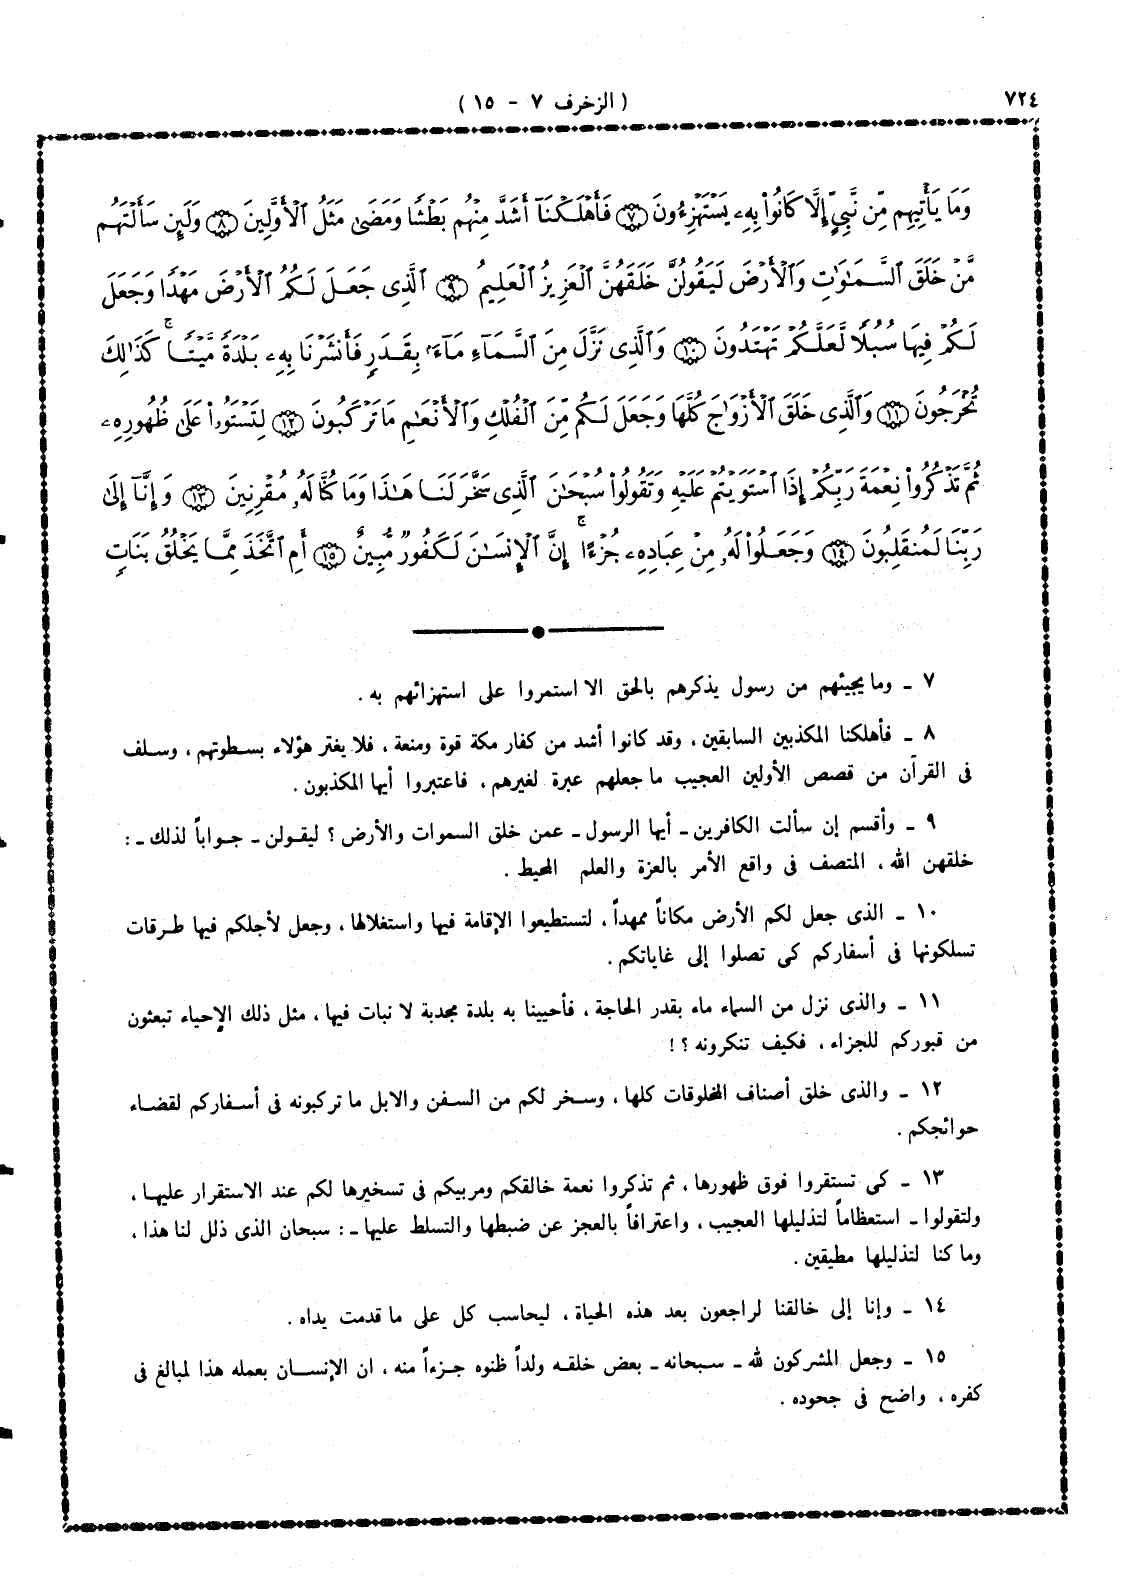 ٧٢٤
( الزخرف ٧ - ١٥ )
وَمَا يَأْتِيهِم مِّن نَّبِيٍّ إِلَّا كَانُوا۟ بِهِۦ يَسْتَهْزِءُونَ ٧ فَأَهْلَكْنَآ أَشَدَّ مِنْهُم بَطْشًا وَمَضَىٰ مَثَلُ ٱلْأَوَّلِينَ ٨ وَلَئِن سَأَلْتَهُم
مَّنْ خَلَقَ ٱلسَّمَـٰوَٰتِ وَٱلْأَرْضَ لَيَقُولُنَّ خَلَقَهُنَّ ٱلْعَزِيزُ ٱلْعَلِيمُ ٩ ٱلَّذِى جَعَلَ لَكُمُ ٱلْأَرْضَ مَهْدًا وَجَعَلَ
لَكُمْ فِيهَا سُبُلًا لَّعَلَّكُمْ تَهْتَدُونَ ١٠ وَٱلَّذِى نَزَّلَ مِنَ ٱلسَّمَآءِ مَآءًۢ بِقَدَرٍ فَأَنشَرْنَا بِهِۦ بَلْدَةً مَّيْتًا ۚ كَذَٰلِكَ
تُخْرَجُونَ ١١ وَٱلَّذِى خَلَقَ ٱلْأَزْوَٰجَ كُلَّهَا وَجَعَلَ لَكُم مِّنَ ٱلْفُلْكِ وَٱلْأَنْعَـٰمِ مَا تَرْكَبُونَ ١٢ لِتَسْتَوُۥا۟ عَلَىٰ ظُهُورِهِۦ
ثُمَّ تَذْكُرُوا۟ نِعْمَةَ رَبِّكُمْ إِذَا ٱسْتَوَيْتُمْ عَلَيْهِ وَتَقُولُوا۟ سُبْحَـٰنَ ٱلَّذِى سَخَّرَ لَنَا هَـٰذَا وَمَا كُنَّا لَهُۥ مُقْرِنِينَ ١٣ وَإِنَّآ إِلَىٰ
رَبِّنَا لَمُنقَلِبُونَ ١٤ وَجَعَلُوا۟ لَهُۥ مِنْ عِبَادِهِۦ جُزْءًا ۚ إِنَّ ٱلْإِنسَـٰنَ لَكَفُورٌ مُّبِينٌ ١٥ أَمِ ٱتَّخَذَ مِمَّا يَخْلُقُ بَنَاتٍ
٧ ـ وما يجيئهم من رسول يذكرهم بالحق الا استمروا على استهزائهم به .
٨ ـ فأهلكنا المكذبين السابقين ، وقد كانوا أشد من كفار مكة قوة ومنعة ، فلا يغتر هؤلاء بسطوتهم ، وسلف
فى القرآن من قصص الأولين العجيب ما جعلهم عبرة لغيرهم ، فاعتبروا أيها المكذبون .
٩ ـ وأقسم إن سألت الكافرين ـ أيها الرسول ـ عمن خلق السموات والأرض ؟ ليقولن ـ جواباً لذلك ـ :
خلقهن الله ، المتصف فى واقع الأمر بالعزة والعلم المحيط .
١٠ ـ الذى جعل لكم الأرض مكاناً ممهداً ، لتستطيعوا الإقامة فيها واستغلالها ، وجعل لأجلكم فيها طرقات
تسلكونها فى أسفاركم كى تصلوا إلى غاياتكم .
١١ ـ والذى نزل من السماء ماء بقدر الحاجة ، فأحيينا به بلدة مجدبة لا نبات فيها ، مثل ذلك الإحياء تبعثون
من قبوركم للجزاء ، فكيف تنكرونه ؟ !
١٢ ـ والذى خلق أصناف المخلوقات كلها ، وسخر لكم من السفن والابل ما تركبونه فى أسفاركم لقضاء
حوائجكم .
١٣ ـ كى تستقروا فوق ظهورها ، ثم تذكروا نعمة خالقكم ومربيكم فى تسخيرها لكم عند الاستقرار عليها ،
ولتقولوا ـ استعظاماً لتذليلها العجيب ، واعترافاً بالعجز عن ضبطها والتسلط عليها ـ : سبحان الذى ذلل لنا هذا ،
وما كنا لتذليلها مطيقين .
١٤ ـ وإنا إلى خالقنا لراجعون بعد هذه الحياة ، ليحاسب كل على ما قدمت يداه .
١٥ ـ وجعل المشركون لله ـ سبحانه ـ بعض خلقه ولداً ظنوه جزءاً منه ، ان الإنسان بعمله هذا لمبالغ فى
كفره ، واضح فى جحوده .